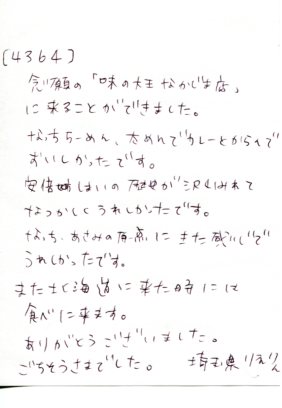 [4364]
念願の「味の大王 なかじま店」
に来ることができました。
なっちらーめん、太めんでカレーとからんで
おいしかったです。
安倍姉しまいの歴史が沢山みれて
なつかしくうれしかったです。
なっち、あさみの原点にきた感じで
うれしかったです。
また北海道に来た時には
食べに来ます。
ありがとうございました。
ごちそうさまでした。 埼玉県 りえりん